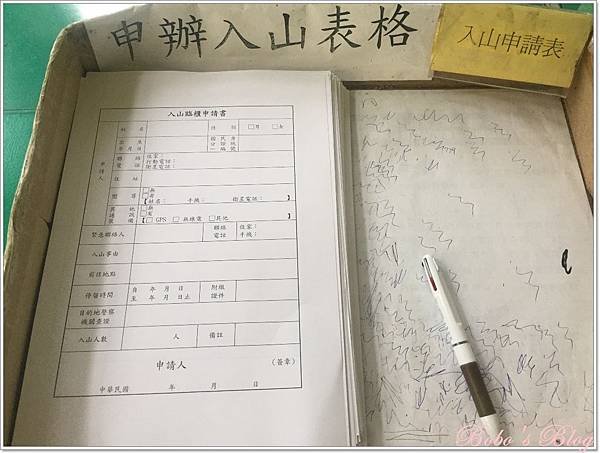 申辦入山表格
入山申請表
入山臨櫃申請書
申請人
姓 名
性 別 □男 □女
出 生
年 月 日
國民身
分證統
一編號
聯 絡
電 話
住家：
行動電話：
衛星電話：
住 址
嚮 導
□無
□有
【姓名： 手機： 衛星電話： 】
□無
□有
【□GPS □無線電 □其他 】
緊急聯絡人
聯絡
電話
住家：
手機：
入山事由
前往地點
停留時間
自 年 月 日
至 年 月 日止
附繳
證件
目的地警察
機關查證
入山人數
人
備註
申請人
（簽章）
中華民國 年 月 日
Bobo's Blog